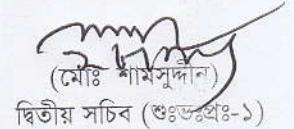 (মোঃ শামসুদ্দীন)
দ্বিতীয় সচিব (শুঃভঃপ্রঃ-১)